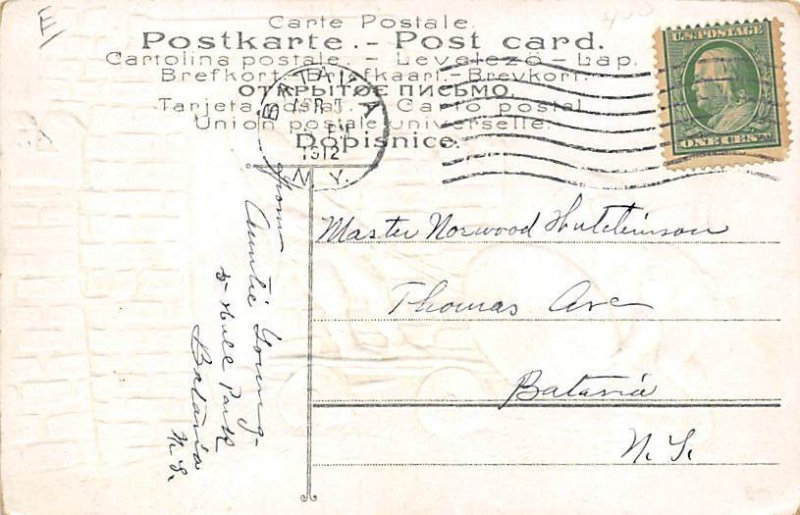 Carte Postale.
Postkarte. - Post card.
Cartolina postale. - Levelező - Lap.
Brefkort. Briefkaart. - Brevkort.
ОТКРЫТОЕ ПИСЬМО.
Tarjeta postal. - Carto postal
Union postale universelle.
Dopisnice.
BATAVIA
APR
1912
N.Y.
U.S. POSTAGE
ONE CENT
Master Norwood Hutchinson
Thomas Ave
Batavia
N.Y.
from
Auntie Young-
5 Hull Park
Batavia
N.Y.